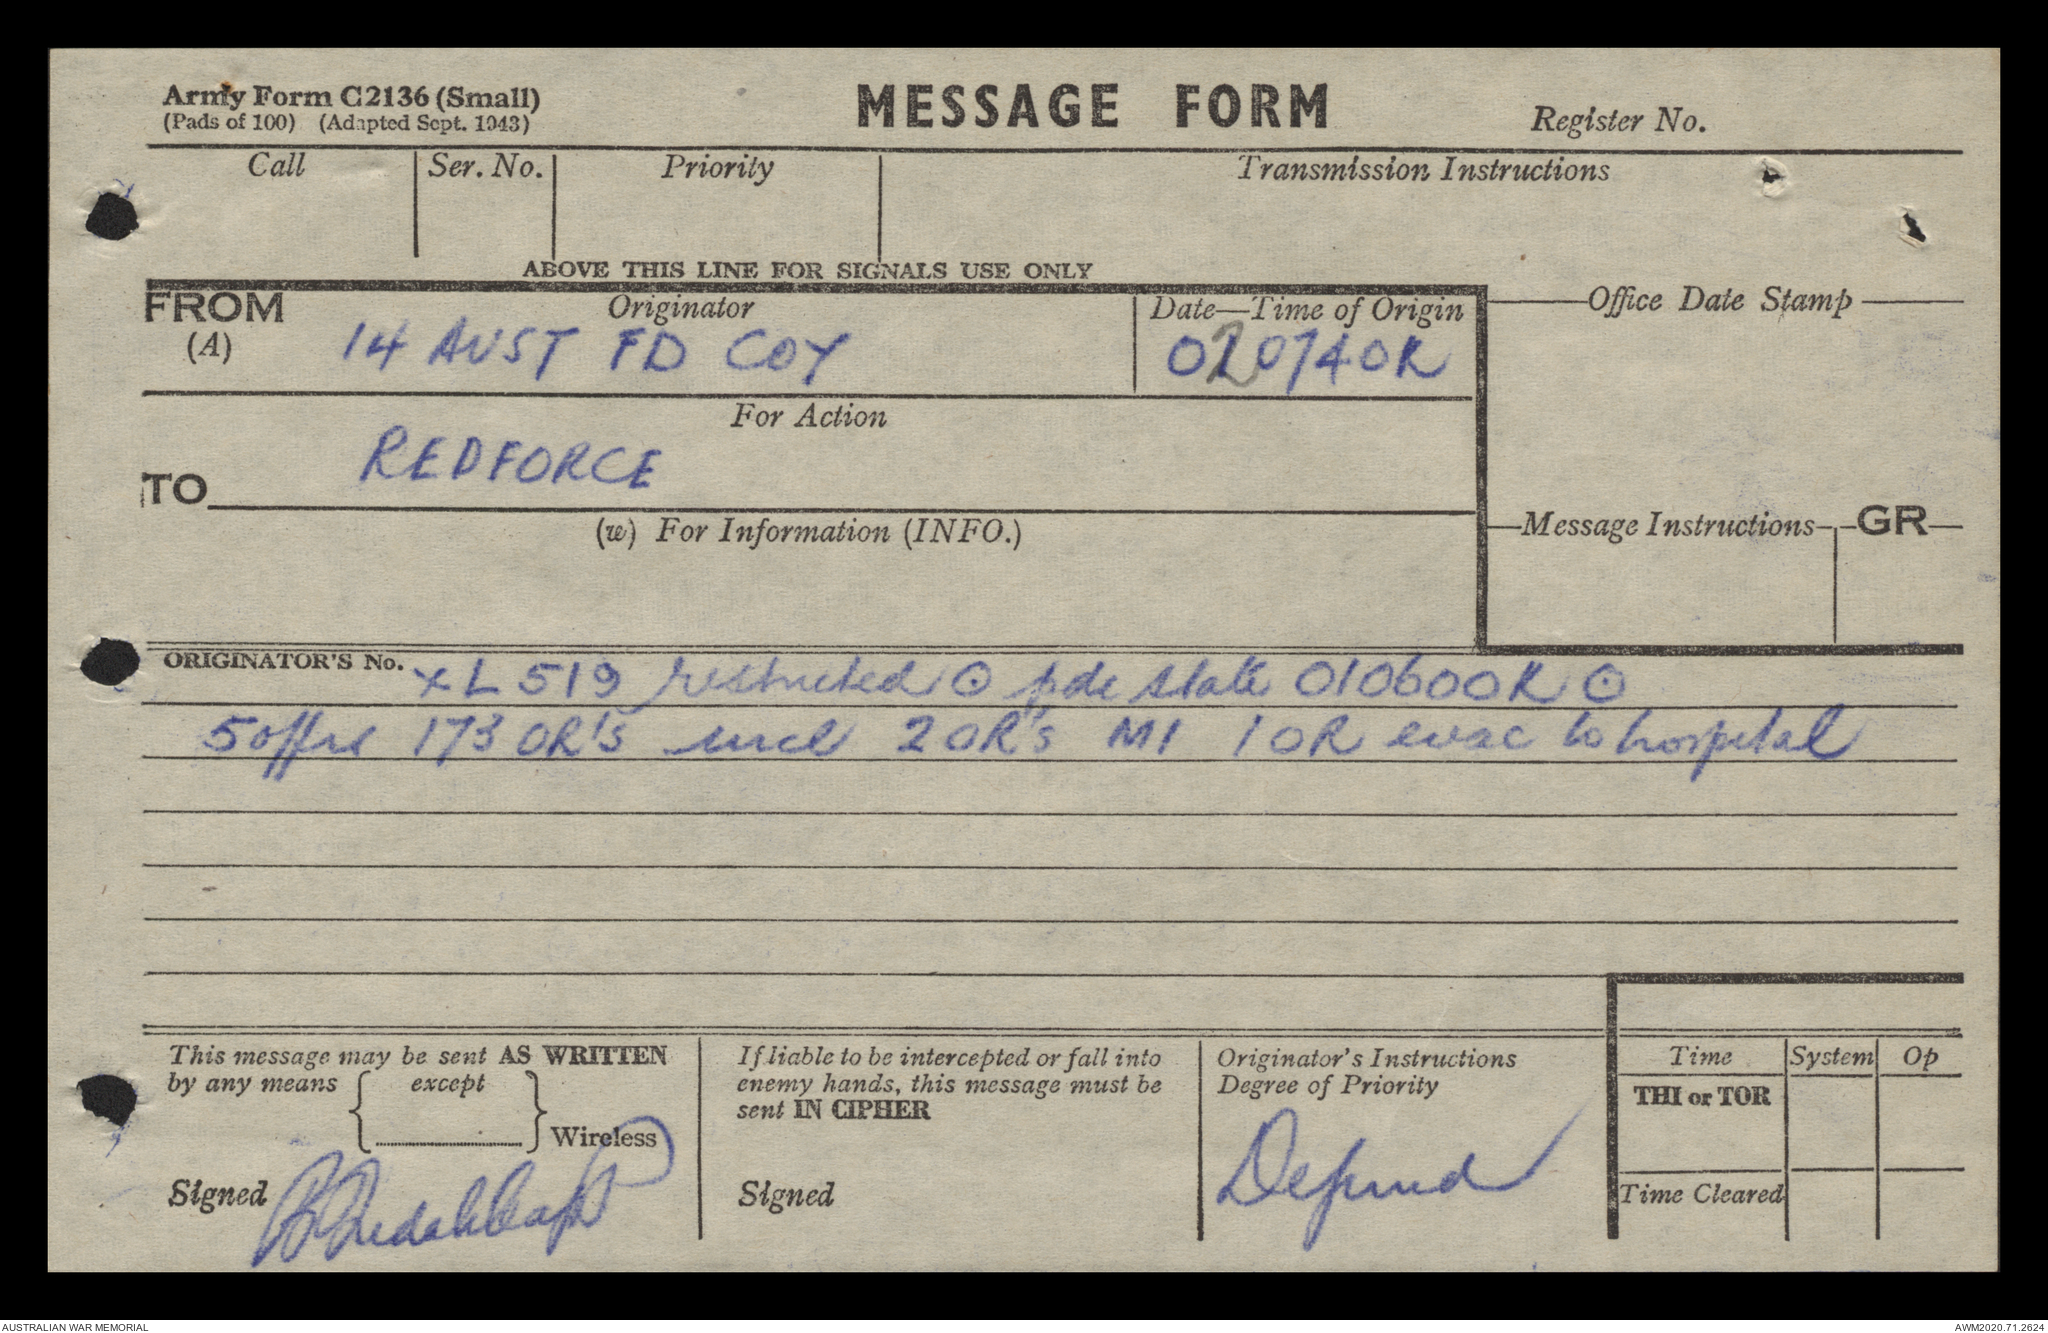 Army Form C2136 (Small)
(Pads of 100) (Adapted Sept. 1943)
MESSAGE FORM
Register No.
Call
Ser. No.
Priority
Transmission Instructions
ABOVE THIS LINE FOR SIGNALS USE ONLY
FROM
(A)
Originator
14 AUST FD COY
Date—Time of Origin
020740K
Office Date Stamp
For Action
REDFORCE
TO
(w) For Information (INFO.)
Message Instructions
GR
ORIGINATOR'S No. XL519 restricted ⊙ pde state 010600K ⊙
5 offrs 173 OR's incl 2 OR's MI 1 OR evac to hospital
This message may be sent AS WRITTEN
by any means { except
} Wireless
Signed
If liable to be intercepted or fall into
enemy hands, this message must be
sent IN CIPHER
Signed
Originator's Instructions
Degree of Priority
Time
System
Op
THI or TOR
Time Cleared
AUSTRALIAN WAR MEMORIAL
AWM2020.71.2624